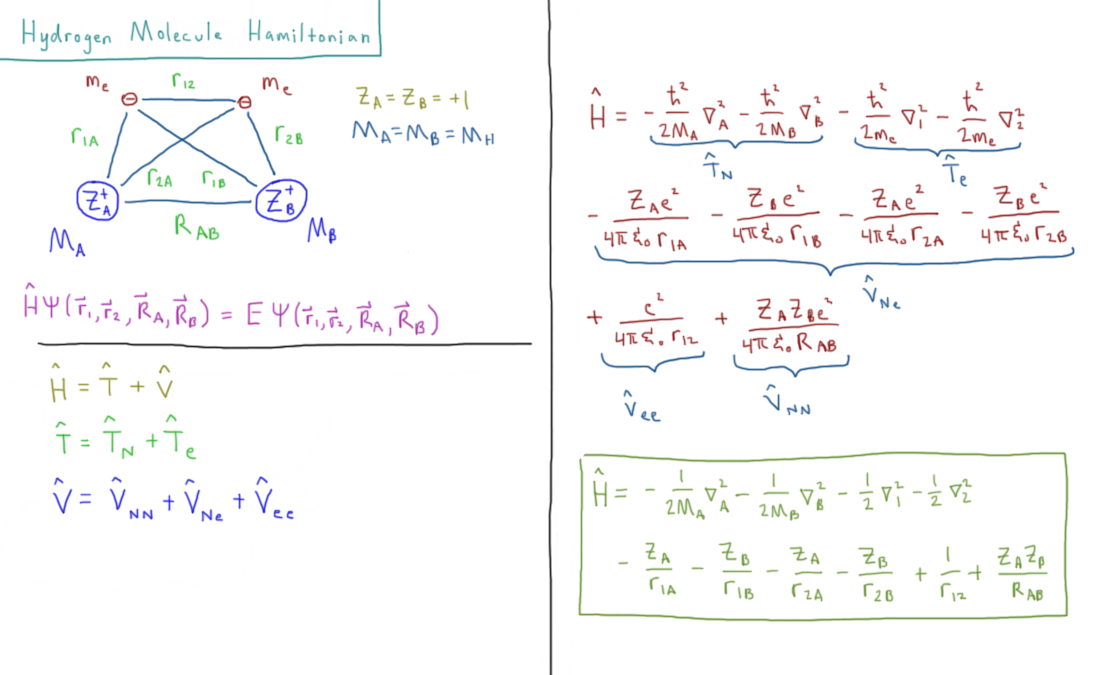 Hydrogen Molecule Hamiltonian
mₑ r₁₂ mₑ
Z_A = Z_B = +1
M_A = M_B = M_H
r₁A r₂B
r₂A r₁B
Z_A⁺ Z_B⁺
R_AB
M_A M_B
ĤΨ(r⃗₁, r⃗₂, R⃗_A, R⃗_B) = E Ψ(r⃗₁, r⃗₂, R⃗_A, R⃗_B)
Ĥ = T̂ + V̂
T̂ = T̂_N + T̂_e
V̂ = V̂_NN + V̂_Ne + V̂_ee
Ĥ = - ħ²/2M_A ∇²_A - ħ²/2M_B ∇²_B - ħ²/2mₑ ∇²₁ - ħ²/2mₑ ∇²₂
T̂_N T̂_e
- Z_A e²/4πε₀ r₁A - Z_B e²/4πε₀ r₁B - Z_A e²/4πε₀ r₂A - Z_B e²/4πε₀ r₂B
V̂_Ne
+ e²/4πε₀ r₁₂ + Z_A Z_B e²/4πε₀ R_AB
V̂_ee V̂_NN
Ĥ = - 1/2M_A ∇²_A - 1/2M_B ∇²_B - 1/2 ∇²₁ - 1/2 ∇²₂
- Z_A/r₁A - Z_B/r₁B - Z_A/r₂A - Z_B/r₂B + 1/r₁₂ + Z_A Z_B/R_AB